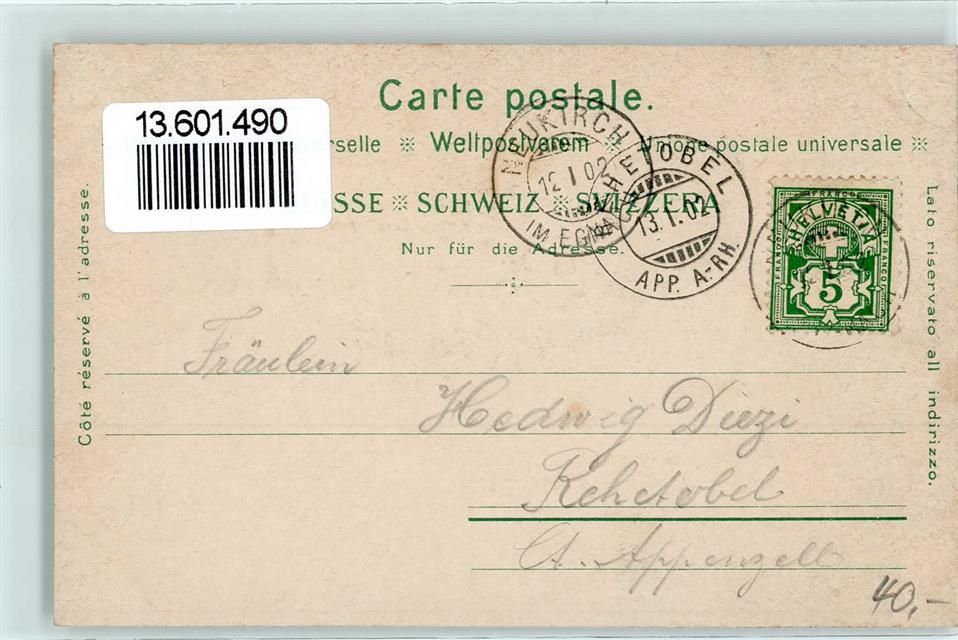 Carte postale.
13.601.490
erselle ※ Weltpostverein ※ Unione postale universale ※
SSE ※ SCHWEIZ ※ SVIZZERA
Nur für die Adresse.
NEUKIRCH
12.I.02
IM EGNA
REHETOBEL
13.I.02
APP. A.-RH
FRANCO
HELVETIA
FRANCO
FRANCO
5
Côté réservé à l'adresse.
Lato riservato all indirizzo.
Fräulein
Hedwig Diezi
Rehetobel
Ct. Appenzell
40,-